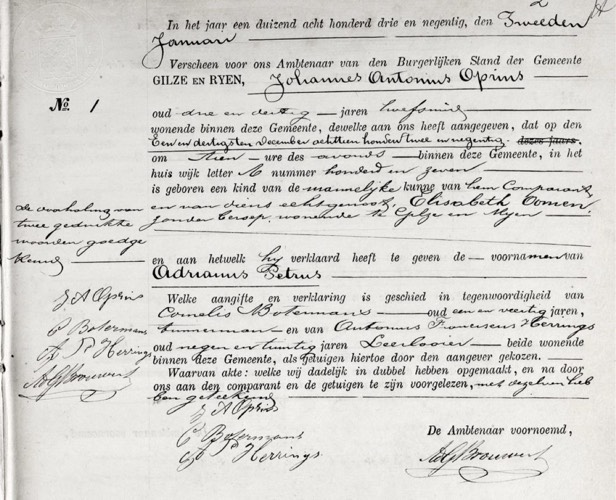 In het jaar een duizend acht honderd drie en negentig, den Tweeden
Januari
Verscheen voor ons Ambtenaar van den Burgerlijken Stand der Gemeente
GILZE EN RYEN, Johannes Antonius Oprins
No. 1
oud drie en dertig jaren hoefsmid
wonende binnen deze Gemeente, dewelke aan ons heeft aangegeven, dat op den
Een en dertigsten December achttien honderd twee en negentig dezes jaars
om tien ure des avonds binnen deze Gemeente, in het
huis wijk letter A nummer honderd en zeven
is geboren een kind van de mannelijke kunne van hem Comparant
en van diens echtgenoot, Elisabeth Oomen
zonder beroep, wonende te Gilze en Rijen
De doorhaling van
twee gedrukte
woorden goedge
keurd
en aan hetwelk hij verklaard heeft te geven de voornamen van
Adrianus Petrus
J A Oprins
C Botermans
A F Herrings
Welke aangifte en verklaring is geschied in tegenwoordigheid van
Cornelis Botermans oud een en veertig jaren,
timmerman en van Antonius Franciscus Herrings
oud negen en twintig jaren Leerlooier beide wonende
binnen deze Gemeente, als getuigen hiertoe door den aangever gekozen.
Waarvan akte: welke wij dadelijk in dubbel hebben opgemaakt, en na door
ons aan den comparant en de getuigen te zijn voorgelezen, met dezelven heb
ben geteekend
J A Oprins
C Botermans
A F Herrings
De Ambtenaar voornoemd,